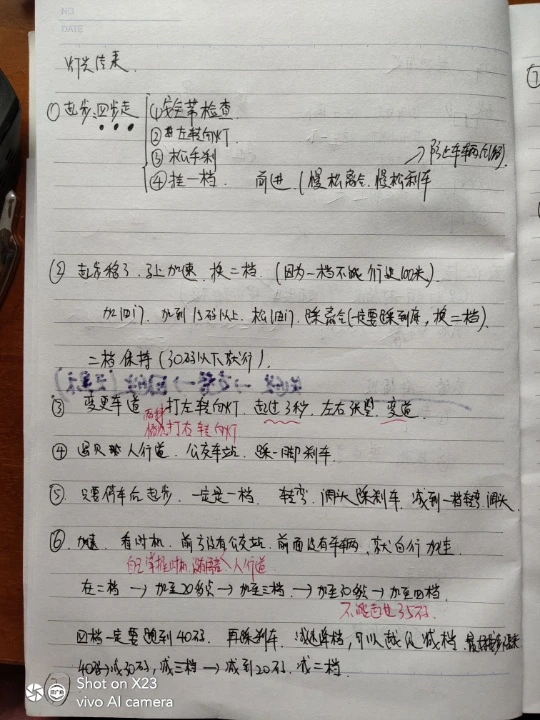 NO.
DATE
灯光结束.
①起步:四步走 ①安全带检查.
②打左转向灯.
③松手刹
④挂一档. 前进.(慢松离合.慢松刹车
→防止车辆
② 起步稳了.马上加速.换二档.(因为一档不能行驶100米).
加油门.加到15码以上.松油门.踩离合(一定要踩到底,换二档).
二档保持(30码以下就行).
③ 变更车道 打左转向灯.超过3秒.左右张望.变道.
打右转向灯
④ 遇见 人行道.公交车站.踩一脚刹车.
⑤ 只要停车后起步.一定是一档. 转弯.调头踩刹车.减到一档转弯调头.
⑥ 加速.看时机.前方没有公交站.前面没有车辆.就自行加速.
自己掌握时机 人行道
在二档→加至20多码→加至三档.→加至30多码→加至四档.
不能超过35码.
四档一定要跑到40码.再踩刹车.减速降档,可以越级减档.
40码→减30码,减三档→减到20码.减二档.
Shot on X23
vivo AI camera